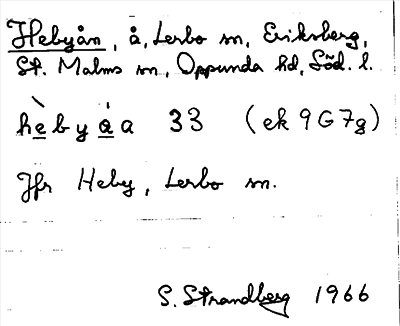 Hebyån, å, Lerbo sn, Eriksberg,
St. Malms sn, Oppunda hd, Söd. l.
hèbyȧa 33 (ek 9G7g)
Jfr Heby, Lerbo sn.
S. Strandberg 1966